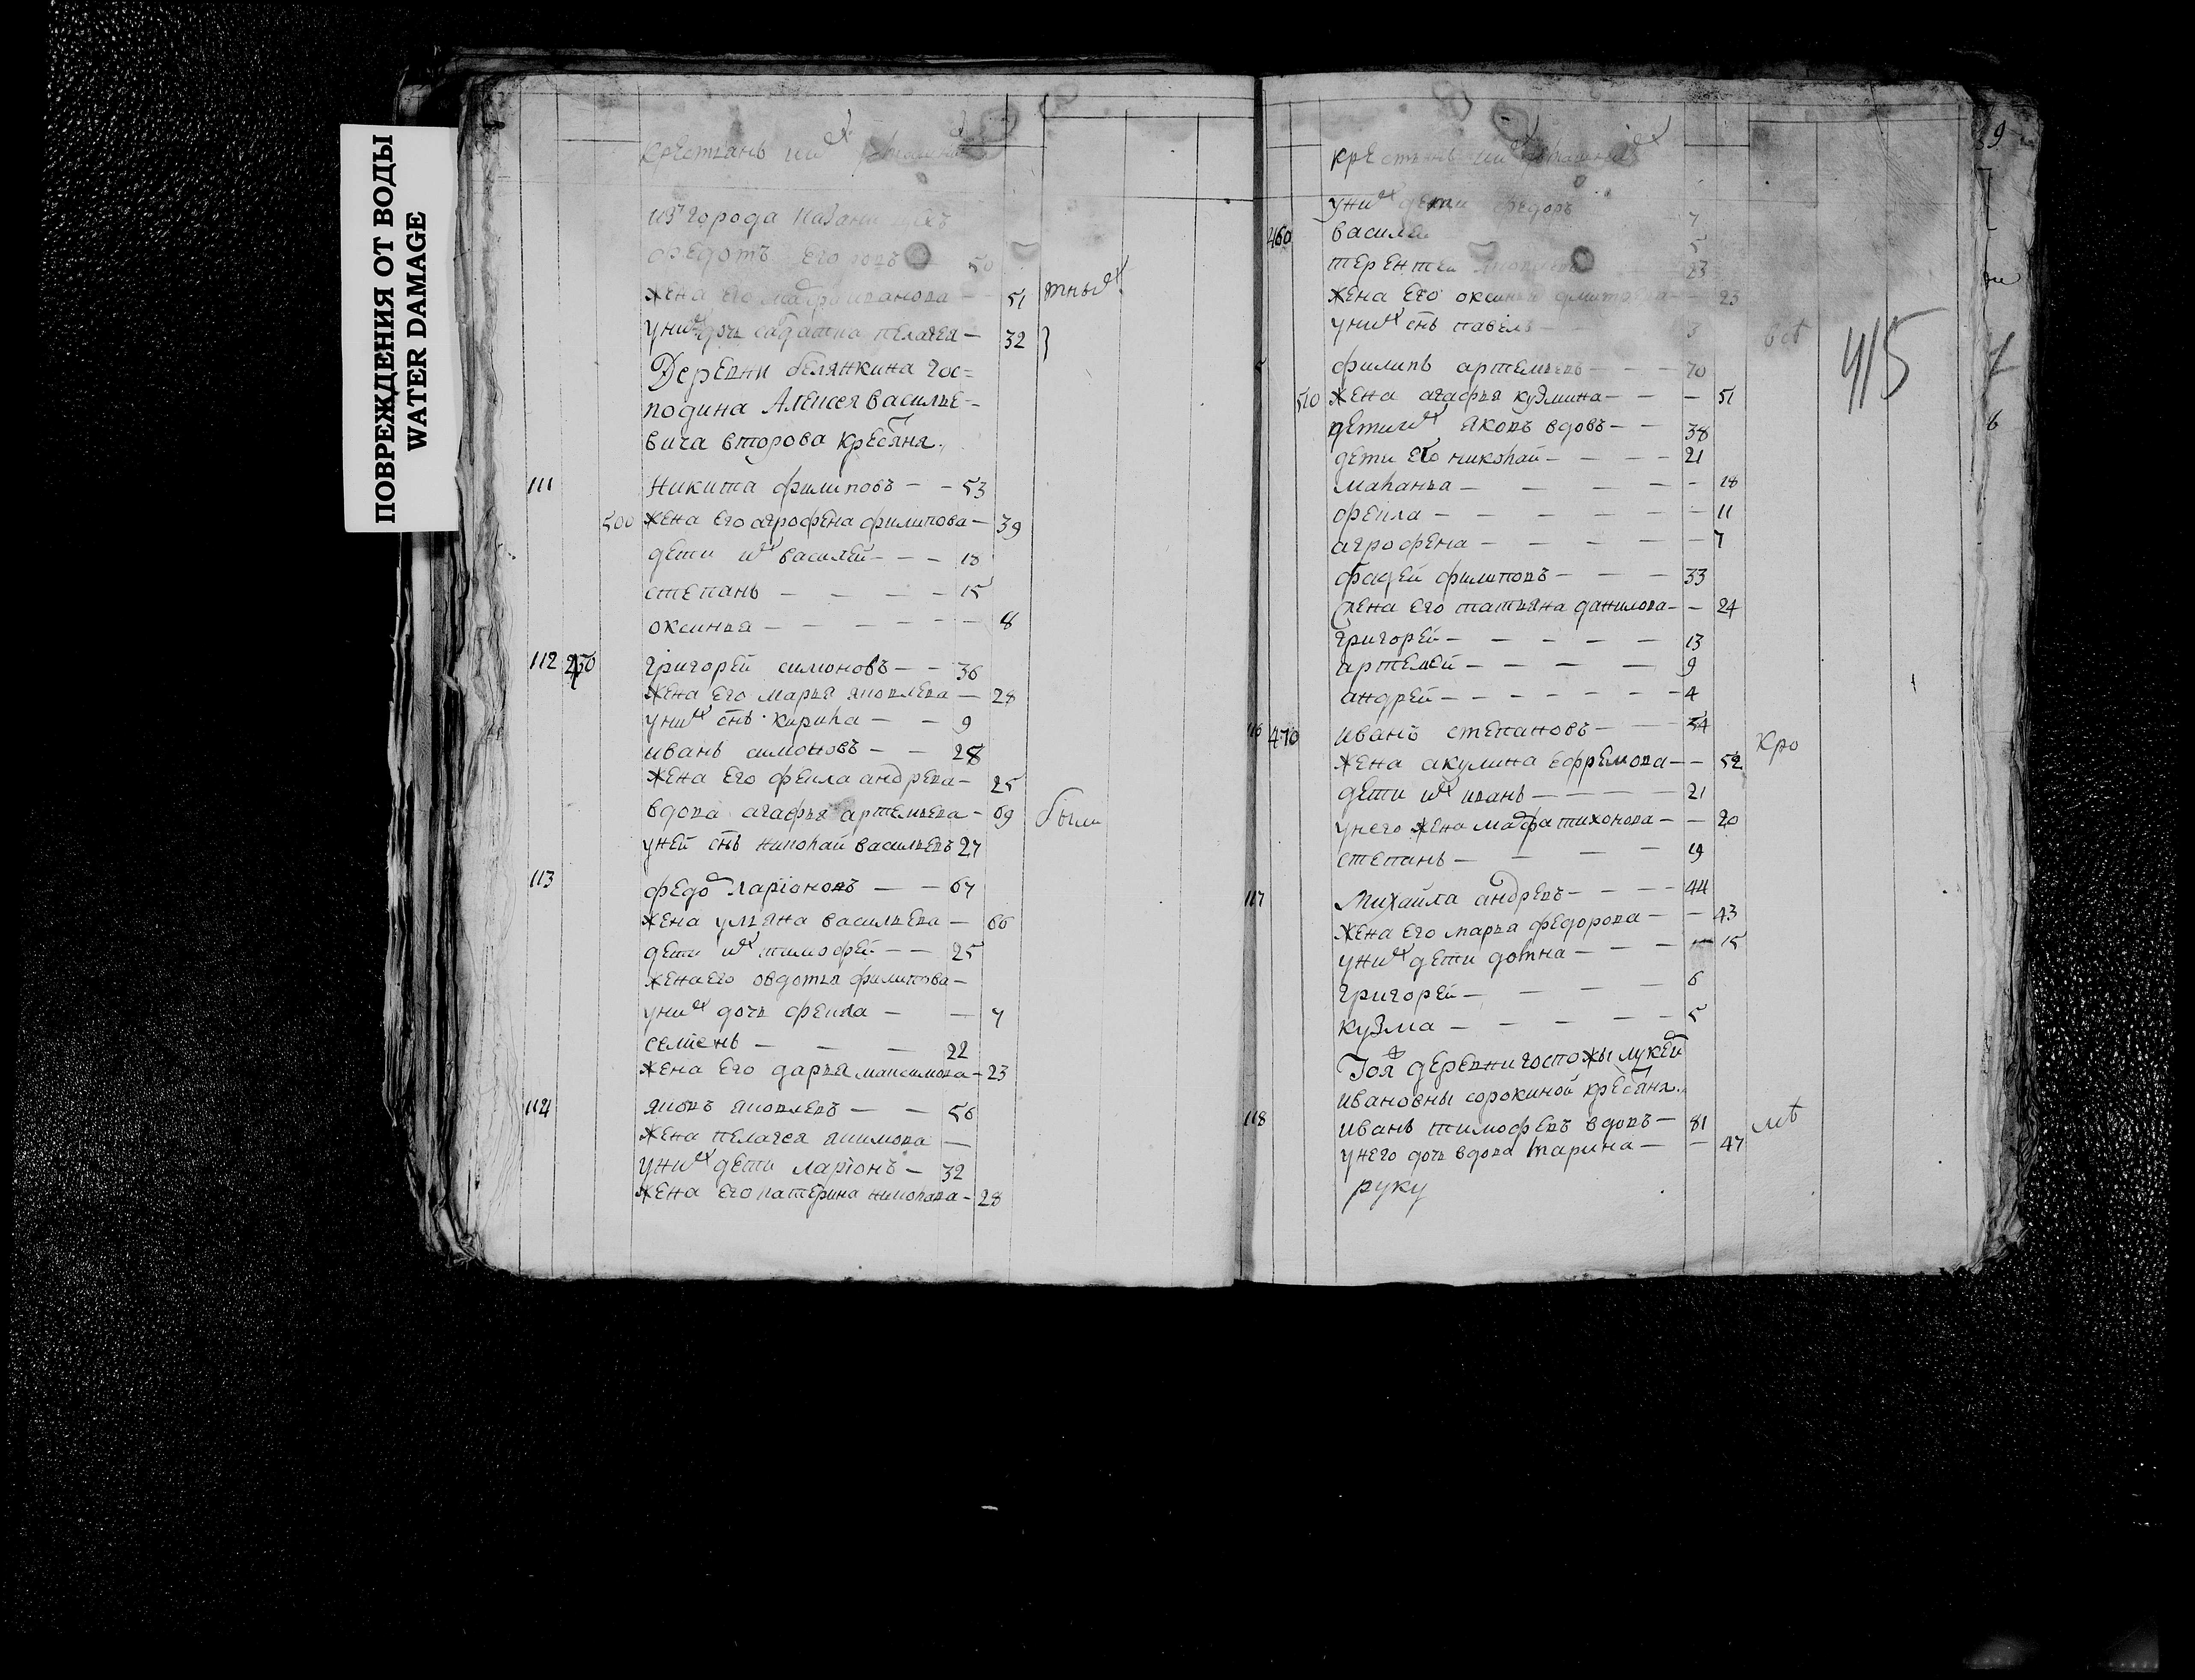 ПОВРЕЖДЕНИЯ ОТ ВОДЫ
WATER DAMAGE
крестьянъ
изъ города
Федотъ Егоровъ 50
жена его иванова — 51 тных
уних пелагея — 32
Деревни белянкина гос=
подина Алексея василье-
вича второва кресьяня
111 Никита филиповъ — 53
500 жена его агрофена филипова — 39
дети их василей — 18
степанъ — 15
оксинья — 8
112 григорей симоновъ — 36
жена его марья яковлева — 28
уних снъ кирила — 9
иванъ симоновъ — 28
жена его фекла андрева — 25
вдова агафья артемьева — 69 были
уней снъ николай васильевъ 27
113 федор ларіоновъ — 67
жена ульяна васильева — 66
дети их тимофей — 25
жена его овдотья филипова —
уних дочь фекла — 7
семенъ — 22
жена его дарья максимова — 23
114 яковъ яковлевъ — 56
жена пелагея якимова —
уних дети ларіонъ — 32
жена его катерина николава — 28
9
крестьянъ
уних дети федоръ 7
460 василей 5
терентей яковлевъ 23
жена его оксинья — 23
уних снъ павелъ — 3
415
филипъ артемьевъ — 70
510 жена агафья кузмина — 51
дети их яковъ вдовъ — 38
дети его николай — 21
маланья — 18
фекла — 11
агрофена — 7
фадей филиповъ — 33
жена его татьяна данилова — 24
григорей — 13
артемей — 9
андрей — 4
116 470 иванъ степановъ — 54 кро
жена акулина ефремова — 52
дети их иванъ — 21
унего жена марфа тихонова — 20
степанъ — 19
117 михайла андревъ — 44
жена его марья федорова — 43
уних дети домна — 15
григорей — 6
кузма — 5
Той деревни госпожы лукей
ивановны сорокиной кресьяня
118 иванъ тимофевъ вдовъ — 81 лѣ
унего дочь вдова марина — 47
руку